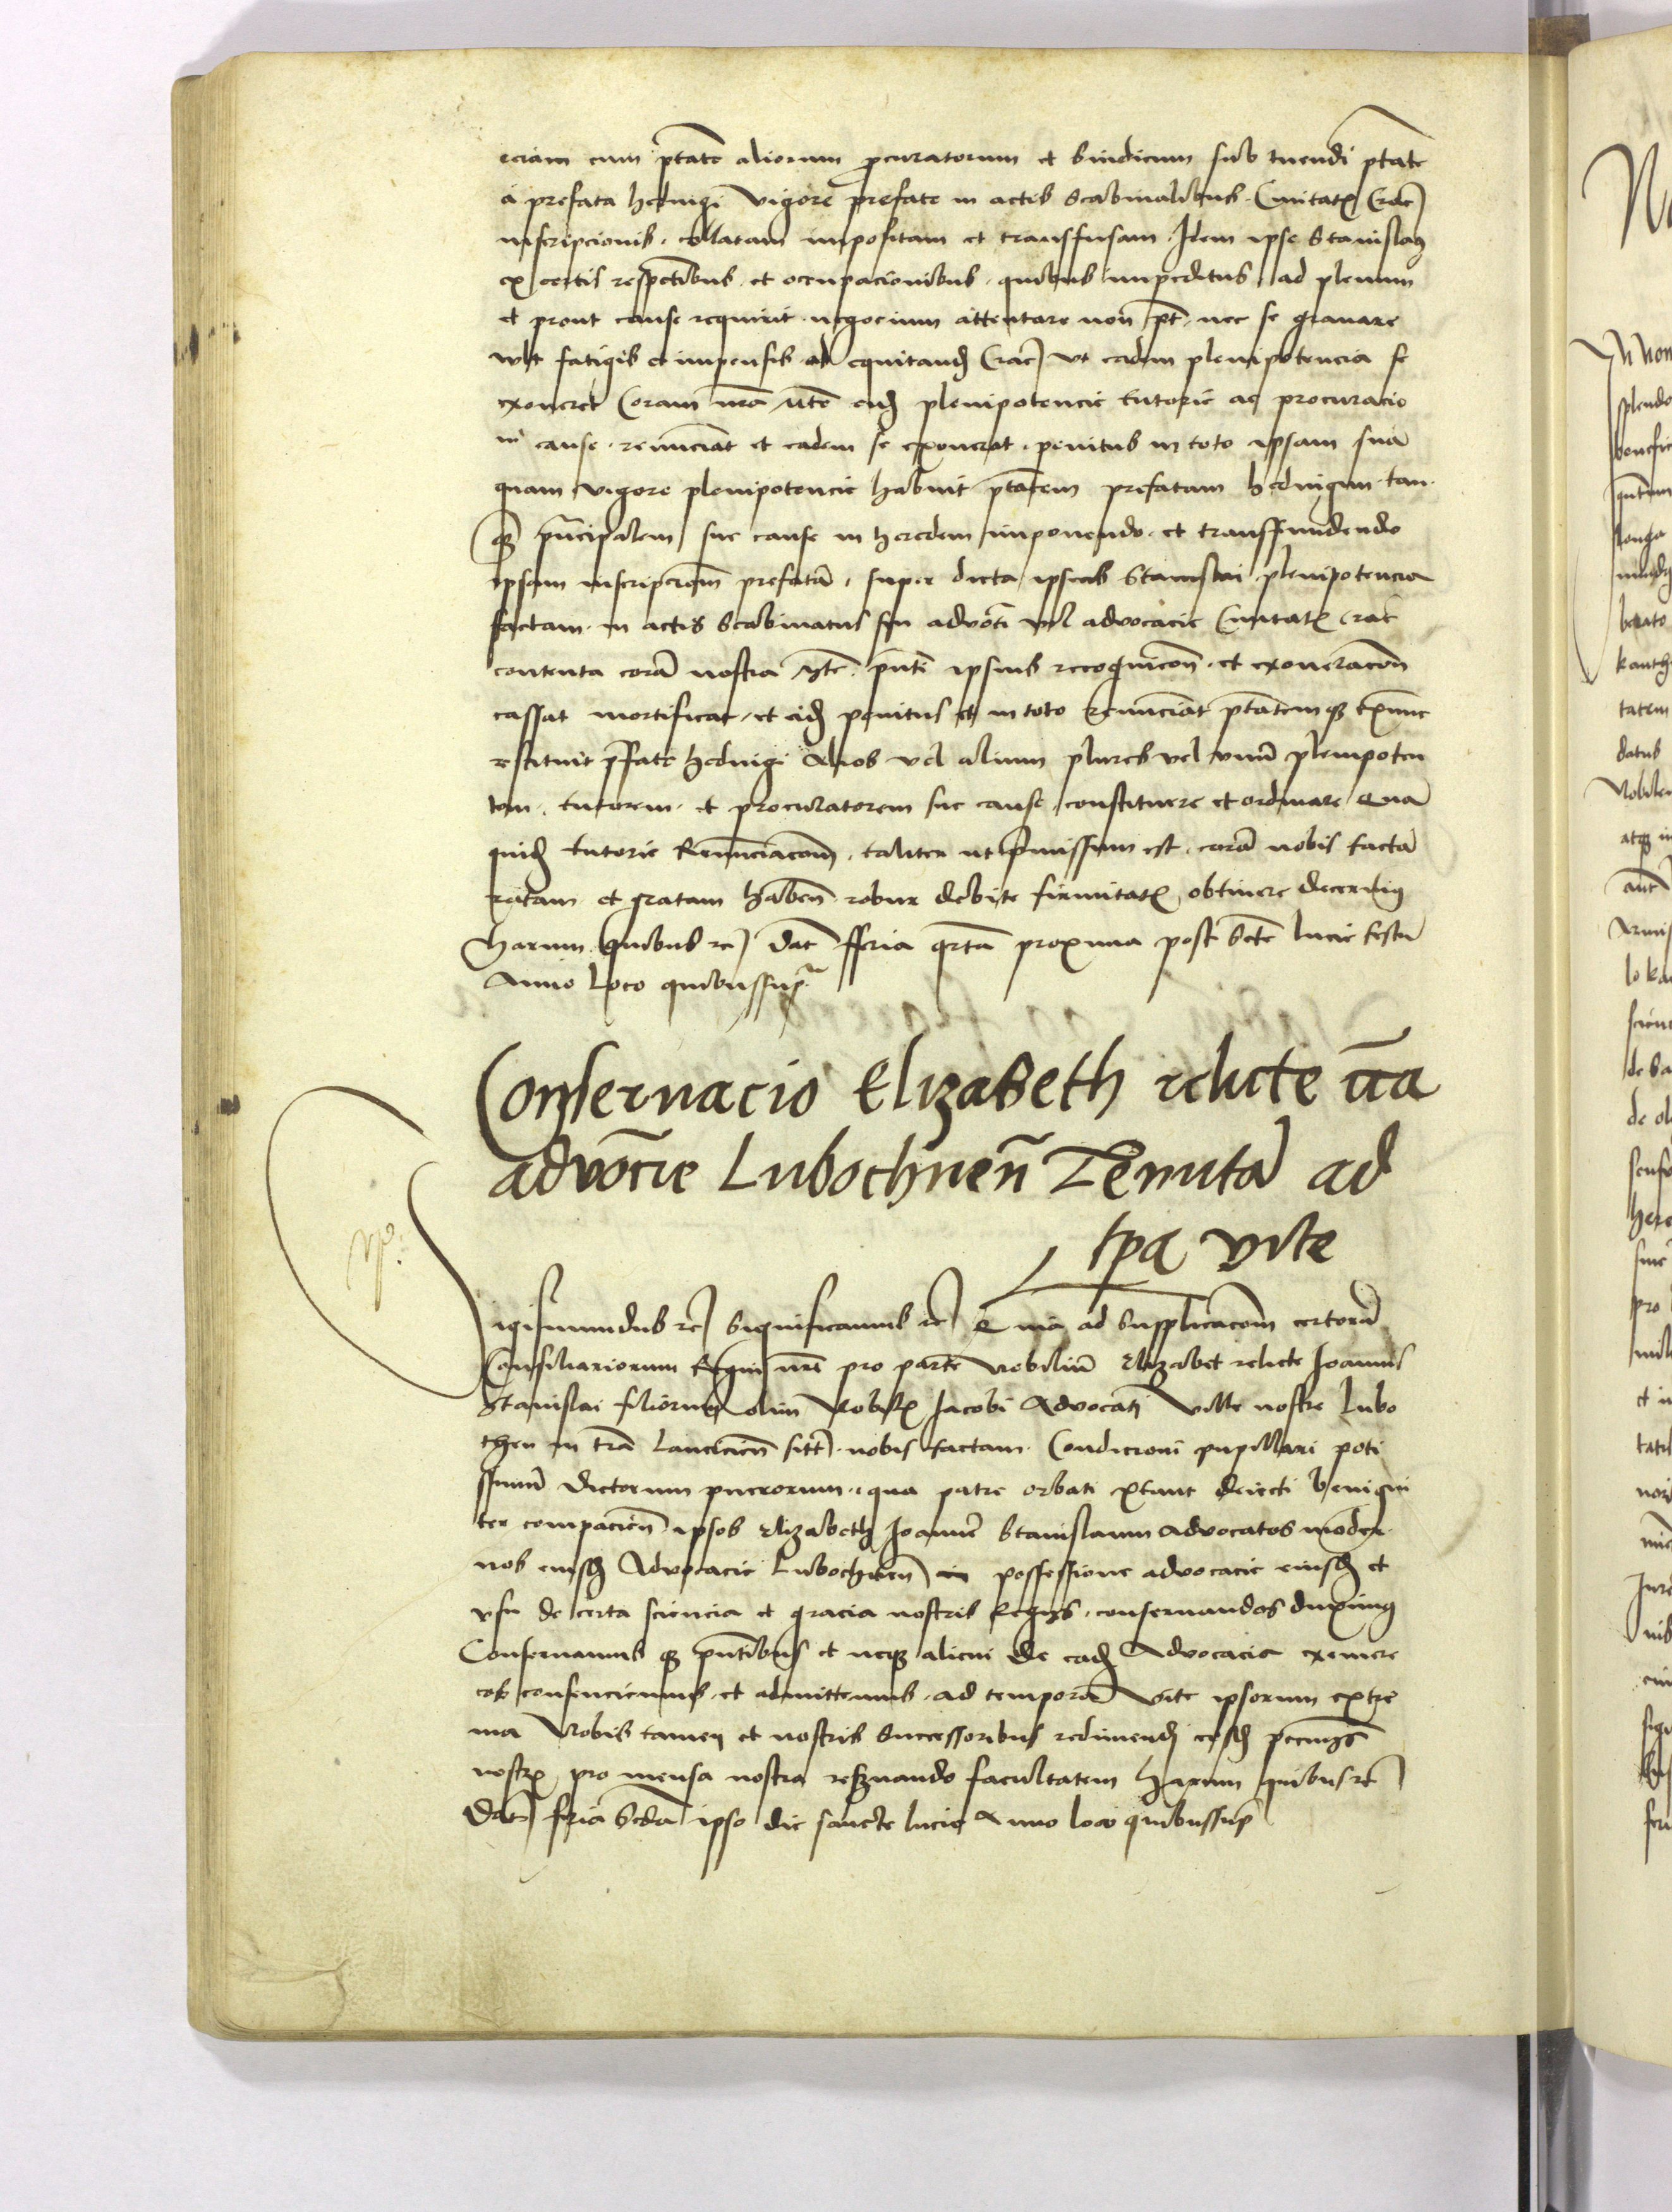 eciam cum ptate aliorum procuratorum et sindicum sub tuendi ptate
a prefata hedvigi vigore prefate in actis scabinalibus Civitatis Crac
inscripcionis collatam impositam et transfusam Idem ipse Stanislaus
ex certis respectibus et occupacionibus quibus impeditus ad plenum
et prout cause requirit negocium attentare non pt nec se gravare
vult fatigis et impensis ad equitand Crac ut eadem plenipotencia se
exoneret Coram nra mte eid plenipotencie tutorie ac procuracio
ni cause renunciat et eadem se exonerat penitus in toto ipsam suam
quam vigore plenipotencie habuit ptatem prefatam hedvigim tan
q principalem sue cause in heredem imponendo et transfundendo
ipsam inscripcionem prefatam super dicta ipsius Stanislai plenipotencia
factam in actis scabinatus seu advocati vel advocacie Civitatis Crac
contenta coram nostra mte pnti ipsius recognicion et exoneracion
cassat mortificat et eid penitus et in toto Renunciat ptatemq extunc
restituit pfate hedvigi Alios vel alium plures vel unum plenipoten
tem tutorem et procuratorem sue cause constituere et ordinare Quam
quid tutorie Renunciacom taliter ut premissum est coram nobis factam
ratam et gratam haben robur debite firmitatis obtinere decernimus
harum quibus rc Dat fferia qrta proxima post scte lucie festum
Anno Loco quibussup
Conservacio Elizabeth relicte una
advocie Lubochnen Tenuta ad
tpa vite
Sigismundus rc Significamus rc Quia ad Supplicacom certorum
Consiliariorum Regni nri pro parte Nobilium Elizabet relicte Joannis
Stanislai filiorum olim Nobilis Jacobi Advocati Ville nostre Lubo
chen in tra Lancicien sitt nobis factam Condicioni pupillari poti
ssimum dictorum puerorum qua patre orbati extant deiecti benigni
ter compacien ipsos Elizabeth Joannem Stanislaum advocatos moder
nos eiusd Advocacie Lubochnen in possessione advocacie eiusd et
usu de certa sciencia et gracia nostris Regiis conservandos duximus
Conservamus q pntibus et neq alicui de ead Advocacia eximere
eos consenciemus et admittemus ad tempora vite ipsorum extre
ma Nobis tamen et nostris Successoribus redimendi eosd pecuniis
nostris pro mensa nostra reservando facultatem harum quibus rc
Dat feria scda ipso die sancte lucie Anno loco quibussup